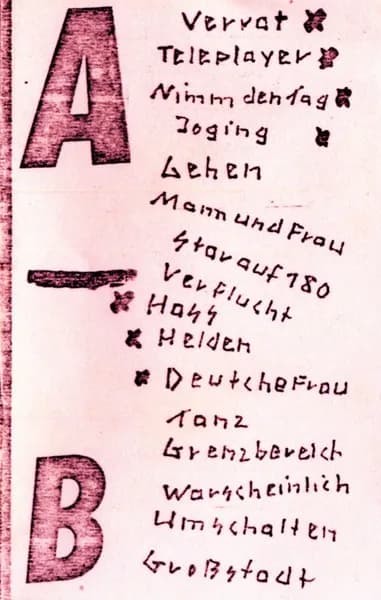 A
Verrat
Teleplayer
Nimm den Tag
Joging
Gehen
Mann und Frau
Star auf 180
Verflucht
Hass
Helden
Deutche Frau
Tanz
Grenzbereich
Warscheinlich
Umschalten
Großstadt
B